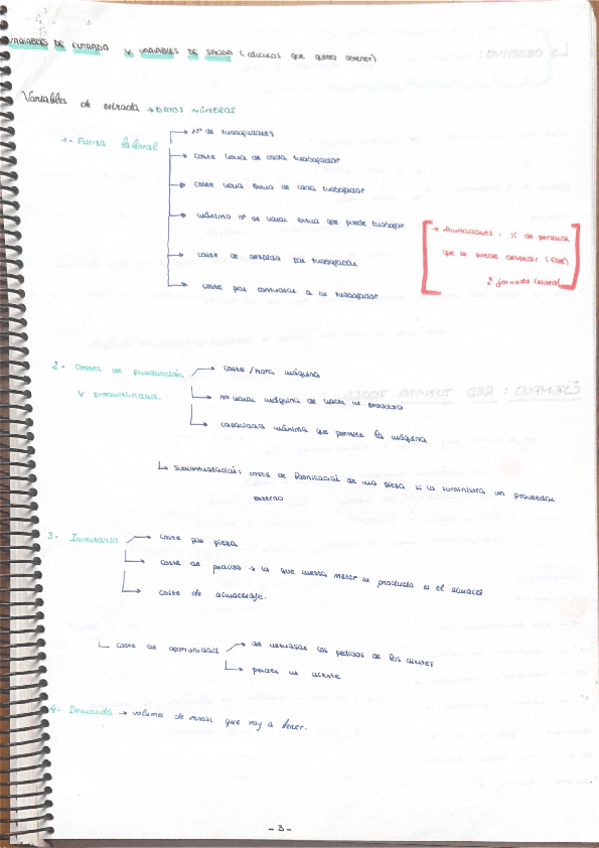 VARIABLES DE ENTRADA Y VARIABLES DE SALIDA (cálculos que quiero obtener)
Variables de entrada → DATOS NÚMEROS
1- Fuerza laboral
→ Nº de trabajadores
→ coste hora de cada trabajador
→ coste hora extra de cada trabajador
→ máximo nº de horas extra que puede trabajar
→ coste de despido por trabajador
→ coste por contratar a un trabajador
→ : % de personal
que se puede (
jornada laboral
2- Costes de producción
y productividad.
→ coste/hora máquina
→ nº horas máquina de hacer un producto
→ capacidad máxima que permite la máquina
↳ Subcontratación: coste de fabricación de una pieza si la suministra un proveedor
externo
3- Inventario
→ coste por pieza
→ coste de → lo que cuesta meter un producto en el almacén
→ coste de almacenaje.
↳ coste de oportunidad
→ los pedidos de los clientes
→ perder un cliente
4- Demanda → volumen de ventas que voy a tener.
- 3 -